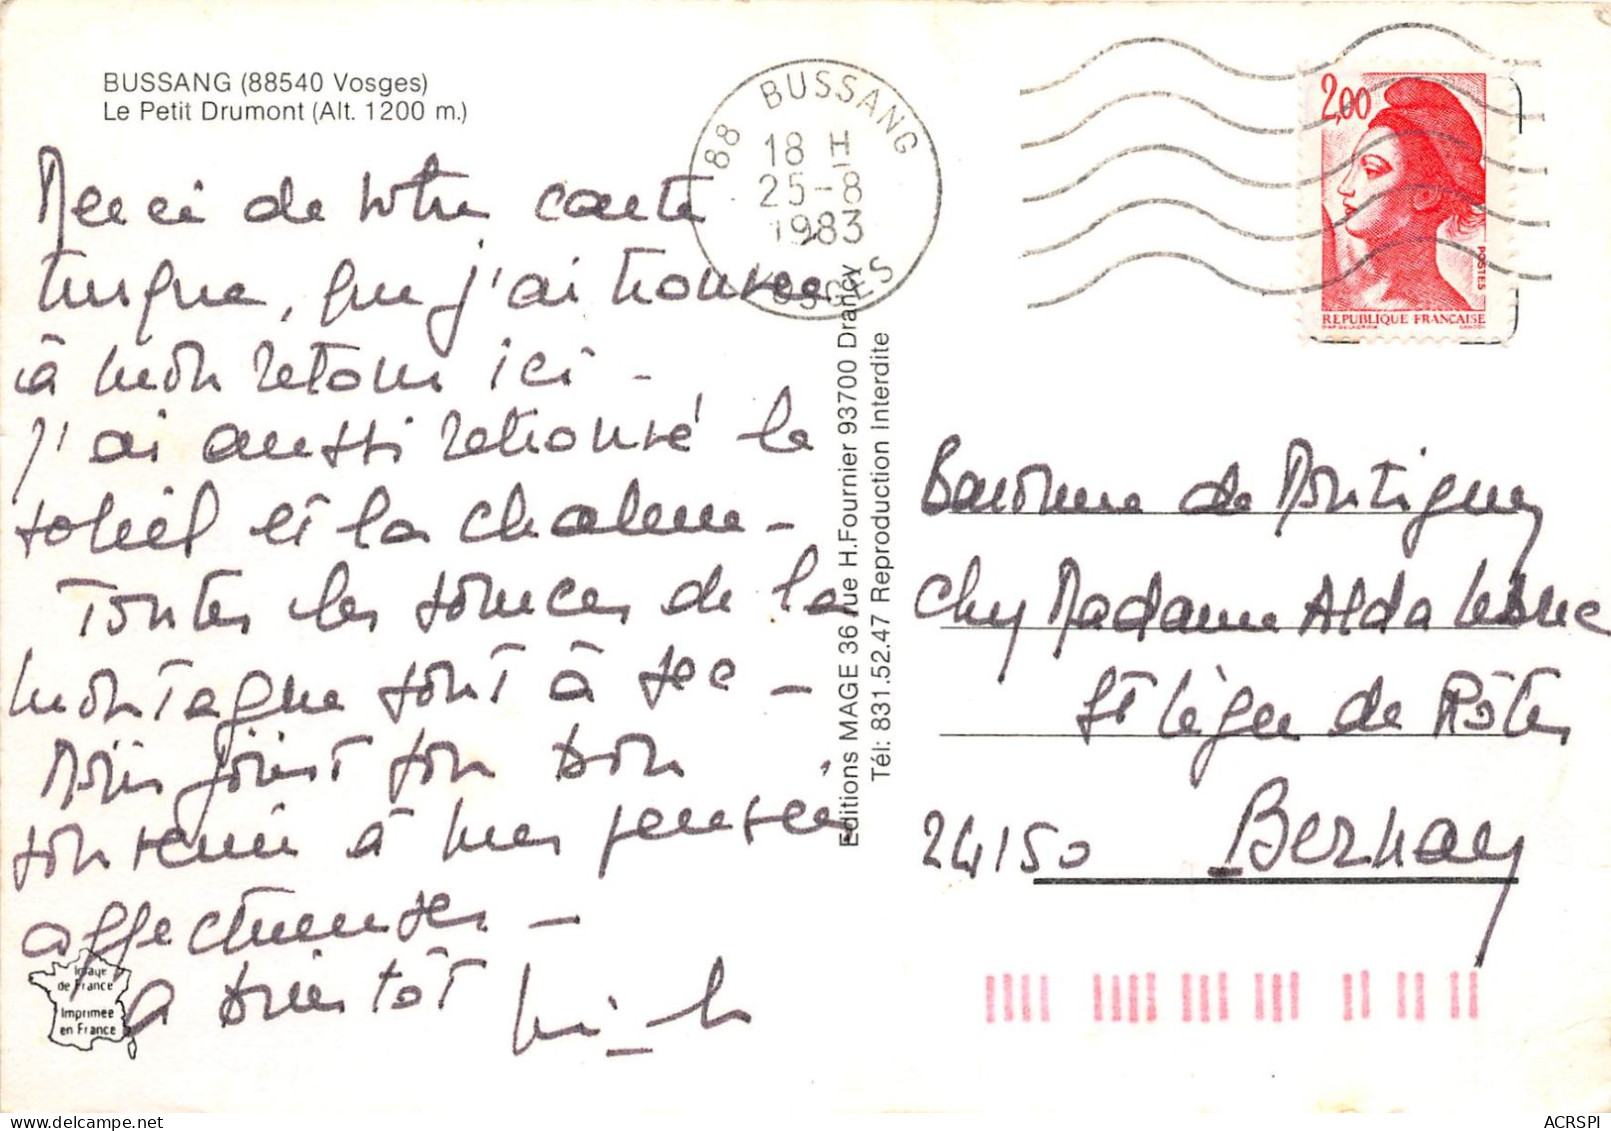 BUSSANG (88540 Vosges)
Le Petit Drumont (Alt. 1200 m.)
Merci de votre carte
turque, que j'ai trouvée
à mon retour ici -
J'ai aussi retrouvé le
soleil et la chaleur -
Toutes les sources de la
montagne sont à sec -
joint son bon
souvenir à mes pensées
affectueuses -
A bientôt
Image
de France
Imprimée
en France
Editions MAGE 36 rue H.Fournier 93700 Drancy
Tél: 831.52.47 Reproduction Interdite
88 BUSSANG
18 H
25-8
1983
VOSGES
2,00
POSTES
REPUBLIQUE FRANCAISE
D'AP. DELACROIX GANDON
Baronne de Montigny
Chez Madame Alda
St Léger de Rôtes
24150 Bernay
ACRSPI